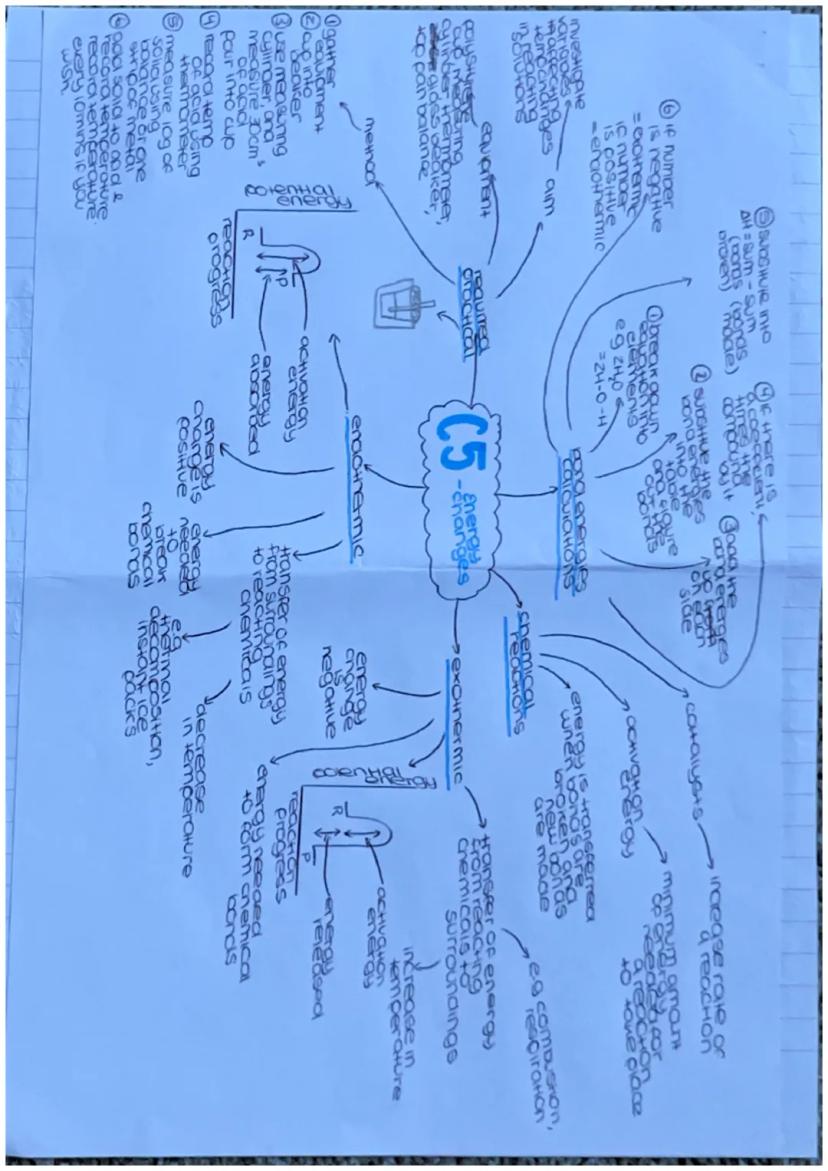 C5
- energy
changes
required
practical
aim
investigate
variables
temp changes
in reacting
solutions
equipment
polystyrene
cup, measuring
cylinder, thermometer,
glass beaker,
top pan balance
method
① gather
equipment
② cup into
beaker
③ use measuring
cylinder and
measure 30cm³
of acid
pour into cup
④ record temp
of acid using
thermometer
⑤ measure 10g of
solid using
balance or one
strip of metal
⑥ add solid to acid &
record temperature.
record temperature
every 10mins if you
wish.
bond energies
calculations
① break down
equation into
elements
e.g 2H₂O
= 2H-O-H
② substitute the
bond energies
into the
table
and figure
out the
bonds
③ add the
bond energies
up
on each
side
④ if there is
a coefficient,
times the
compound
by it
⑤ substitute into
ΔH = sum - sum
(bonds (bonds
broken) made)
⑥ if number
is negative
= exothermic
if number
is positive
= endothermic
chemical
reactions
catalysts
increase rate of
a reaction
activation
energy
minimum amount
of energy
needed for
a reaction
to take place
energy is transferred
when bonds are
broken and
new bonds
are made
exothermic
transfer of energy
from reacting
chemicals to
surroundings
e.g combustion,
respiration,
increase in
temperature
potential
energy
R
P
reaction
progress
activation
energy
energy
released
energy needed
to form chemical
bonds
energy
change
is
negative
endothermic
transfer of energy
from surroundings
to reacting
chemicals
decrease
in temperature
e.g
thermal
decomposition,
instant ice
packs
energy
needed
to
break
chemical
bonds
energy
change is
positive
potential
energy
R
P
reaction
progress
activation
energy
energy
absorbed